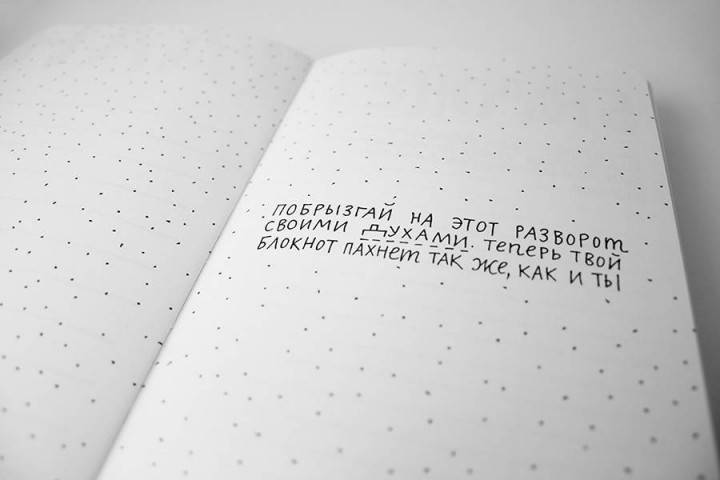 ПОБРЫЗГАЙ НА ЭТОТ РАЗВОРОТ
СВОИМИ ДУХАМИ. ТЕПЕРЬ ТВОЙ
БЛОКНОТ ПАХНЕТ ТАК ЖЕ, КАК И ТЫ